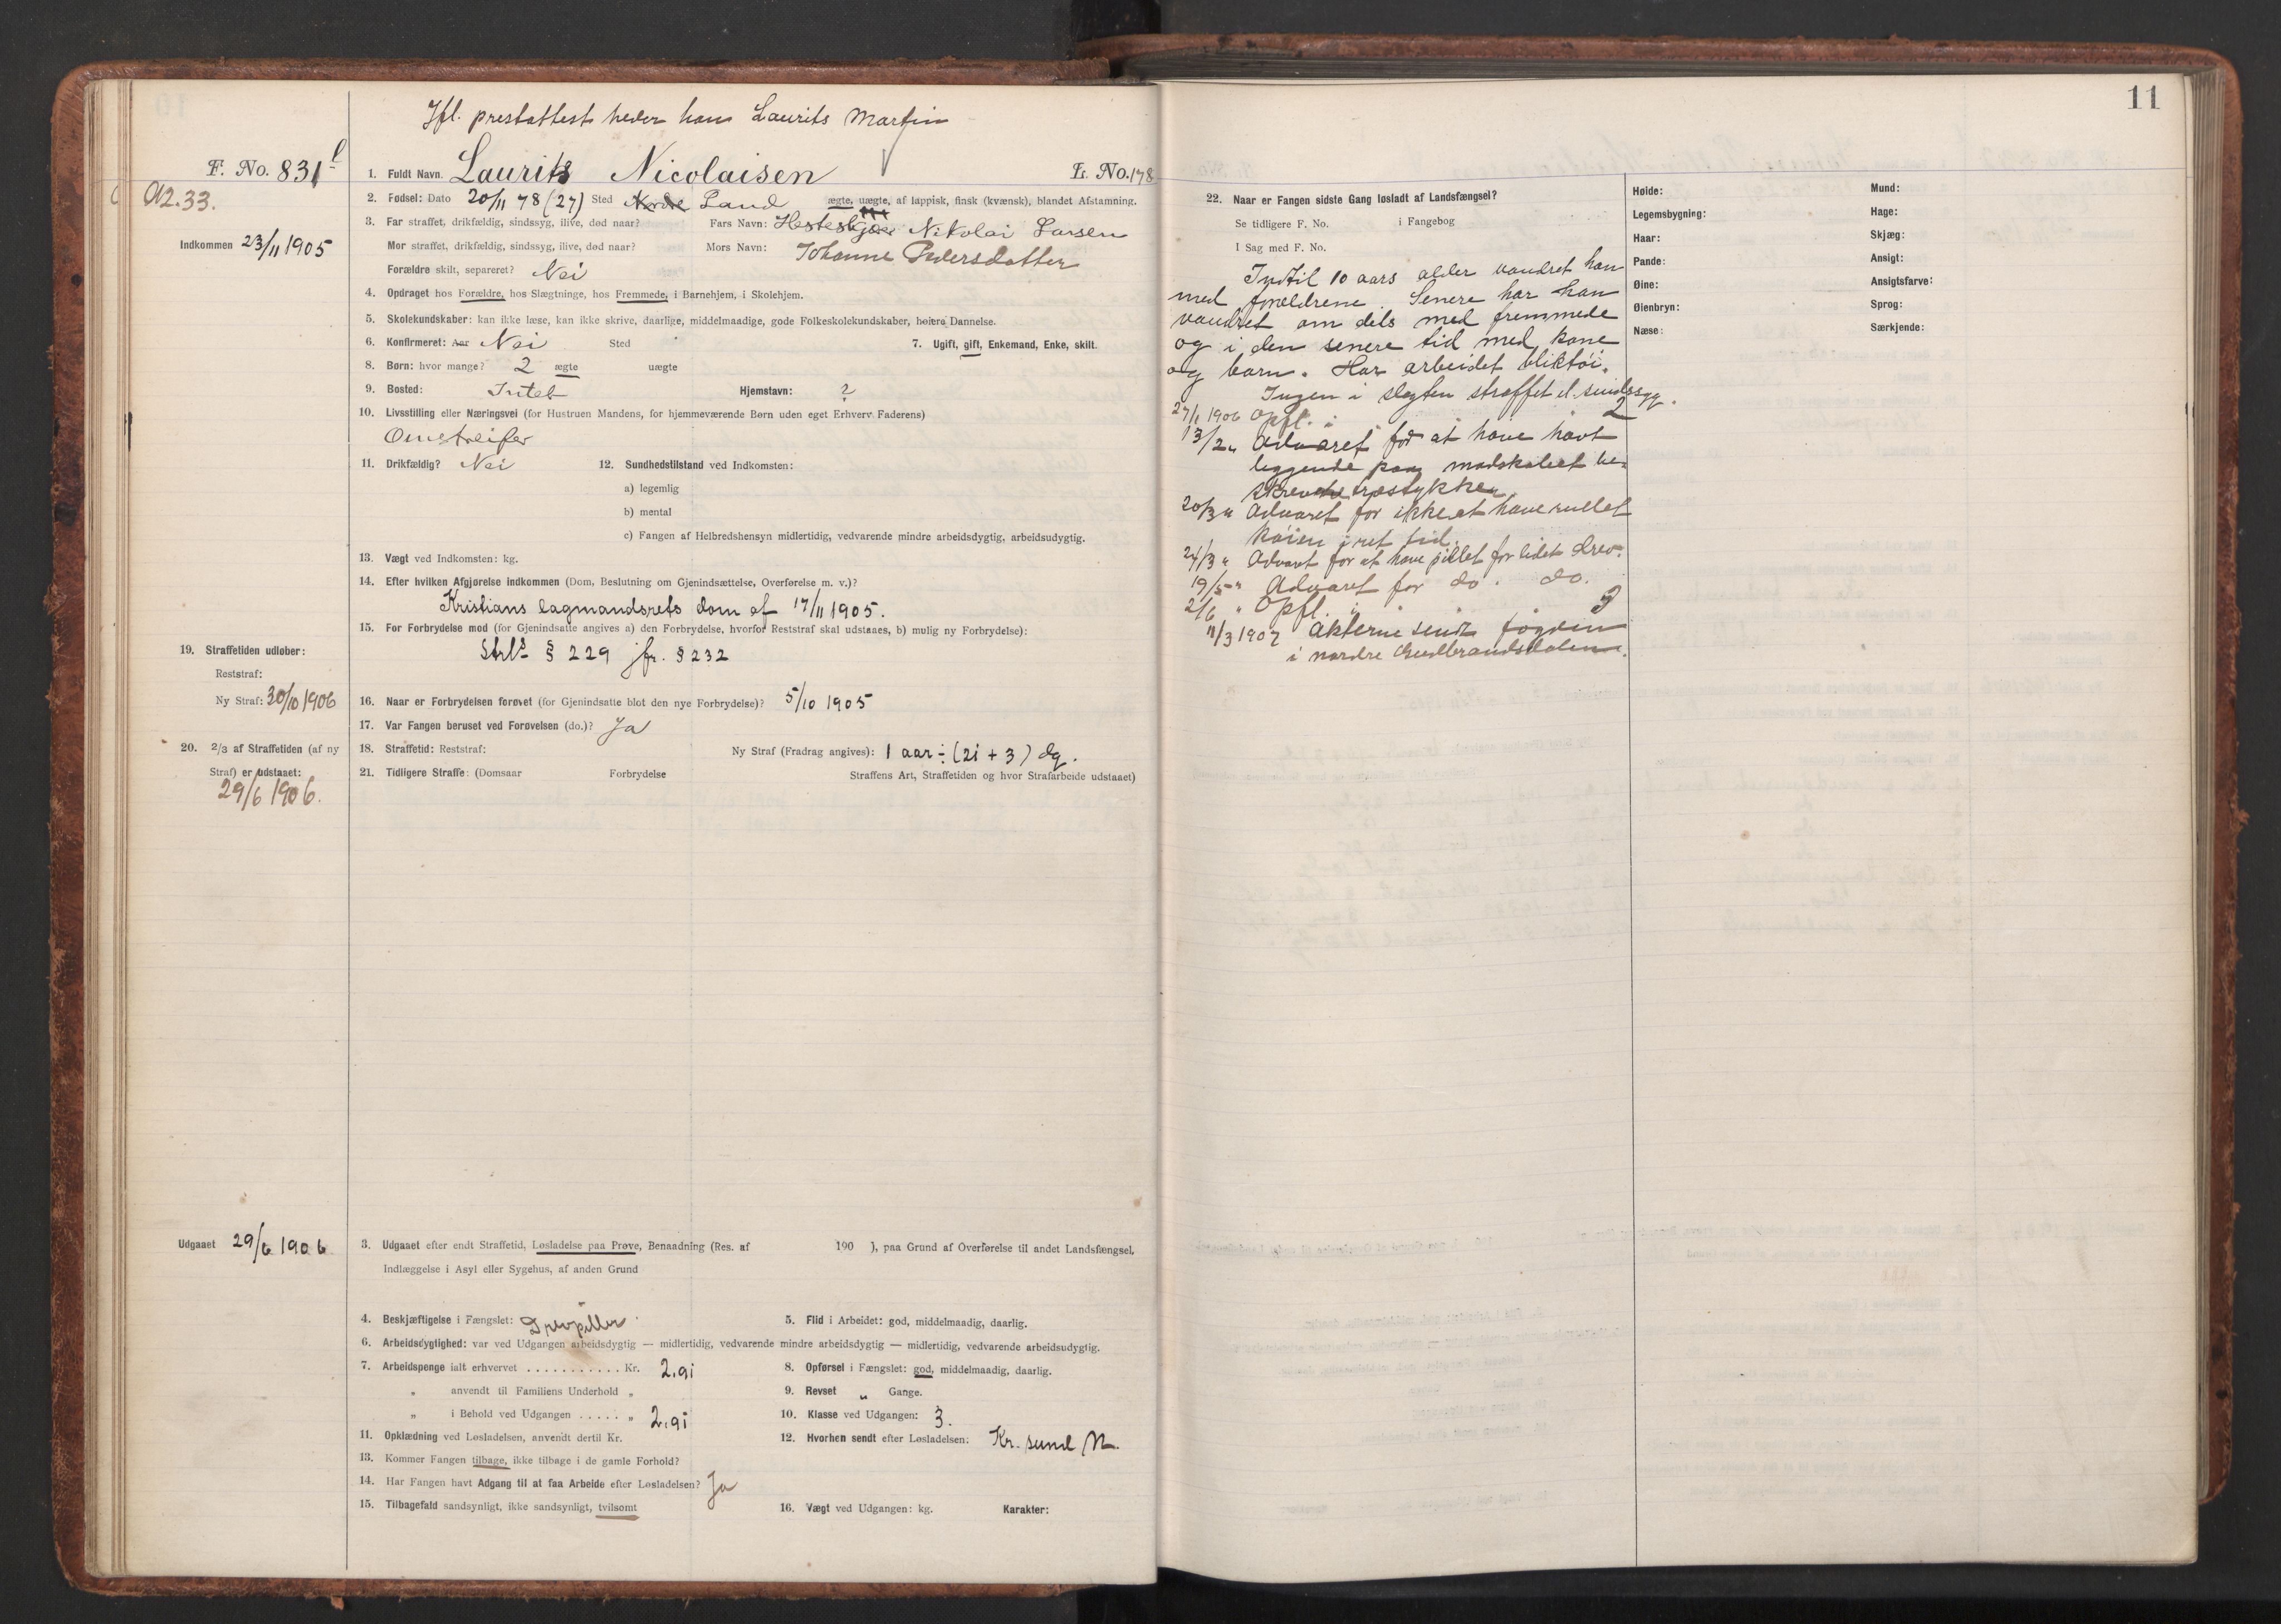 11
Ifl. prestattest heder han Laurits Martin
F. No. 831 L. No. 178
A2.33.
1. Fuldt Navn. Laurits Nicolaisen
2. Fødsel: Dato 20/11 78 (27) Sted Nordre Land ægte, uægte, af lappisk, finsk (kvænsk), blandet Afstamning.
3. Far straffet, drikfældig, sindssyg, ilive, død naar? Fars Navn: Nikolai Larsen
Indkommen 23/11 1905
Mor straffet, drikfældig, sindssyg, ilive, død naar? Mors Navn: Johanne Pedersdatter
Forældre skilt, separeret? Nei
4. Opdraget hos Forældre, hos Slægtninge, hos Fremmede, i Barnehjem, i Skolehjem.
5. Skolekundskaber: kan ikke læse, kan ikke skrive, daarlige, middelmaadige, gode Folkeskolekundskaber, høiere Dannelse.
6. Konfirmeret: Aar Nei Sted 7. Ugift, gift, Enkemand, Enke, skilt.
8. Børn: hvor mange? 2 ægte uægte
9. Bosted: Intet Hjemstavn: ?
10. Livsstilling eller Næringsvei (for Hustruen Mandens, for hjemmeværende Børn uden eget Erhverv Faderens)
Omstreifer
11. Drikfældig? Nei 12. Sundhedstilstand ved Indkomsten:
a) legemlig
b) mental
c) Fangen af Helbredshensyn midlertidig, vedvarende mindre arbeidsdygtig, arbeidsudygtig.
13. Vægt ved Indkomsten: kg.
14. Efter hvilken Afgjørelse indkommen (Dom, Beslutning om Gjenindsættelse, Overførelse m. v.)?
Kristians lagmandsrets dom af 17/11 1905.
15. For Forbrydelse mod (for Gjenindsatte angives a) den Forbrydelse, hvorfor Reststraf skal udstaaes, b) mulig ny Forbrydelse):
Strl. § 229 jfr. § 232
19. Straffetiden udløber:
Reststraf:
Ny Straf: 30/10 1906
16. Naar er Forbrydelsen forøvet (for Gjenindsatte blot den nye Forbrydelse)? 5/10 1905
17. Var Fangen beruset ved Forøvelsen (do.)? Ja
20. 2/3 af Straffetiden (af ny
Straf) er udstaaet:
29/6 1906.
18. Straffetid: Reststraf: Ny Straf (Fradrag angives): 1 aar ÷ (21 + 3) dg.
21. Tidligere Straffe: (Domsaar Forbrydelse Straffens Art, Straffetiden og hvor Strafarbeide udstaaet)
Udgaaet 29/6 1906
3. Udgaaet efter endt Straffetid, Løsladelse paa Prøve, Benaadning (Res. af 190 ), paa Grund af Overførelse til andet Landsfængsel,
Indlæggelse i Asyl eller Sygehus, af anden Grund
4. Beskjæftigelse i Fængslet: Drevpiller 5. Flid i Arbeidet: god, middelmaadig, daarlig.
6. Arbeidsdygtighed: var ved Udgangen arbeidsdygtig — midlertidig, vedvarende mindre arbeidsdygtig — midlertidig, vedvarende arbeidsudygtig.
7. Arbeidspenge ialt erhvervet . . . . . . . . . . . Kr. 2.91 8. Opførsel i Fængslet: god, middelmaadig, daarlig.
„ anvendt til Familiens Underhold „ 9. Revset „ Gange.
„ i Behold ved Udgangen . . . . . „ 2.91 10. Klasse ved Udgangen: 3.
11. Opklædning ved Løsladelsen, anvendt dertil Kr. 12. Hvorhen sendt efter Løsladelsen: Kr. sund N.
13. Kommer Fangen tilbage, ikke tilbage i de gamle Forhold?
14. Har Fangen havt Adgang til at faa Arbeide efter Løsladelsen? Ja
15. Tilbagefald sandsynligt, ikke sandsynligt, tvilsomt 16. Vægt ved Udgangen: kg. Karakter:
22. Naar er Fangen sidste Gang løsladt af Landsfængsel?
Se tidligere F. No. i Fangebog
I Sag med F. No.
Indtil 10 aars alder vandret han
med forældrene. Senere har han
vandret om dels med fremmede
og i den senere tid med kone
og barn. Har arbeidet bliktøi.
Ingen i slegten straffet el. sindssyg.
27/1 1906 Opfl. i 2
13/2 „ Advaret for at have havt
liggende paa madskabet be-
skrevne træstykker
20/3 „ Advaret for ikke at have rullet
køien i ret tid.
24/3 „ Advaret for at have pillet for lidet drev.
19/5 „ Advaret for do. do.
2/6 „ Opfl. i 3
11/3 1907 Akterne sendt fogden
i nordre Gudbrandsdalen.
Høide: Mund:
Legemsbygning: Hage:
Haar: Skjæg:
Pande: Ansigt:
Øine: Ansigtsfarve:
Øienbryn: Sprog:
Næse: Særkjende: